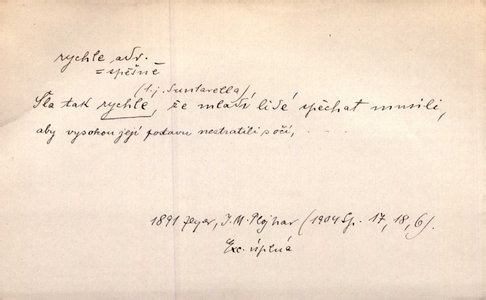 rychle adv.
= spěšně
(t.j. Suntarella)
Šla tak rychle, že mladí lidé spěchat musili,
aby vysokou její postavu neztratili s očí, . . . .
1891 Zeyer, J. M. Plojhar (1904 Sp. 17, 18, 6).
Exc. úplná